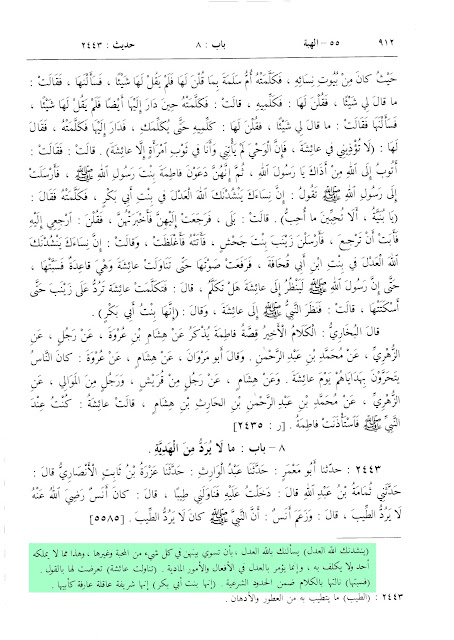 ٩١٢ ٥٥ – الهبة باب : ٨ حديث : ٢٤٤٣
حَيْثُ كانَ مِنْ بُيُوتِ نِسَائِهِ ، فَكَلَّمَتْهُ أُمُّ سَلَمَةَ بِمَا قُلْنَ لَهَا فَلَمْ يَقُلْ لَهَا شَيْئًا ، فَسَأَلْنَهَا ، فَقَالَتْ :
ما قالَ لِي شَيْئًا ، فَقُلْنَ لَهَا : فَكَلِّمِيهِ ، قالَتْ : فَكَلَّمَتْهُ حِينَ دَارَ إِلَيْهَا أَيْضًا فَلَمْ يَقُلْ لَهَا شَيْئًا ،
فَسَأَلْنَهَا فَقَالَتْ : ما قالَ لِي شَيْئًا ، فَقُلْنَ لَهَا : كَلِّمِيهِ حَتَّى يُكَلِّمَكِ ، فَدَارَ إِلَيْهَا فَكَلَّمَتْهُ ، فَقَالَ
لَهَا : (لَا تُؤْذِينِي في عائِشَةَ ، فَإِنَّ الْوَحْيَ لَمْ يَأْتِنِي وَأَنَا في ثَوْبِ امْرَأَةٍ إِلَّا عائِشَةَ) . قالَتْ : فَقَالَتْ :
أَتُوبُ إِلَى اللهِ مِنْ أَذَاكَ يَا رَسُولَ اللهِ ، ثُمَّ إِنَّهُنَّ دَعَوْنَ فاطِمَةَ بِنْتَ رَسُولِ اللهِ ﷺ ، فَأَرْسَلَتْ
إِلَى رَسُولِ اللهِ ﷺ تَقُولُ : إِنَّ نِسَاءَكَ يَنْشُدْنَكَ اللهَ الْعَدْلَ في بِنْتِ أَبِي بَكْرٍ ، فَكَلَّمَتْهُ فَقَالَ :
(يَا بُنَيَّةُ ، أَلَا تُحِبِّينَ ما أُحِبُّ) . قالَتْ : بَلَى ، فَرَجَعَتْ إِلَيْهِنَّ فَأَخْبَرَتْهُنَّ ، فَقُلْنَ : ارْجِعِي إِلَيْهِ
فَأَبَتْ أَنْ تَرْجِعَ ، فَأَرْسَلْنَ زَيْنَبَ بِنْتَ جَحْشٍ ، فَأَتَتْهُ فَأَغْلَظَتْ ، وَقالَتْ : إِنَّ نِسَاءَكَ يَنْشُدْنَكَ
اللهَ الْعَدْلَ في بِنْتِ ابْنِ أَبِي قُحَافَةَ ، فَرَفَعَتْ صَوْتَهَا حَتَّى تَنَاوَلَتْ عائِشَةَ وَهْيَ قاعِدَةٌ فَسَبَّتْهَا ،
حَتَّى إِنَّ رَسُولَ اللهِ ﷺ لَيَنْظُرُ إِلَى عائِشَةَ هَلْ تَكَلَّمُ ، قالَ : فَتَكَلَّمَتْ عائِشَةُ تَرُدُّ عَلَى زَيْنَبَ حَتَّى
أَسْكَتَتْهَا ، قالَتْ : فَنَظَرَ النَّبِيُّ ﷺ إِلَى عائِشَةَ ، وَقالَ : (إِنَّهَا بِنْتُ أَبِي بَكْرٍ) .
قالَ الْبُخَارِيُّ : الْكَلَامُ الْأَخِيرُ قِصَّةُ فاطِمَةَ يُذْكَرُ عَنْ هِشَامِ بْنِ عُرْوَةَ ، عَنْ رَجُلٍ ، عَنِ
الزُّهْرِيِّ ، عَنْ مُحَمَّدِ بْنِ عَبْدِ الرَّحْمٰنِ . وَقالَ أَبُو مَرْوَانَ ، عَنْ هِشَامٍ ، عَنْ عُرْوَةَ : كانَ النَّاسُ
يَتَحَرَّوْنَ بِهَدَايَاهُمْ يَوْمَ عائِشَةَ . وَعَنْ هِشَامٍ ، عَنْ رَجُلٍ مِنْ قُرَيْشٍ ، وَرَجُلٍ مِنَ الْمَوَالِي ، عَنِ
الزُّهْرِيِّ ، عَنْ مُحَمَّدِ بْنِ عَبْدِ الرَّحْمٰنِ بْنِ الحَارِثِ بْنِ هِشَامٍ ، قالَتْ عائِشَةُ : كُنْتُ عِنْدَ
النَّبِيِّ ﷺ فَاسْتَأْذَنَتْ فاطِمَةُ . [ر : ٢٤٣٥]
٨ – باب : ما لَا يُرَدُّ مِنَ الْهَدِيَّةِ .
٢٤٤٣ : حدّثنا أَبُو مَعْمَرٍ : حَدَّثَنَا عَبْدُ الْوَارِثِ : حَدَّثَنَا عَزْرَةُ بْنُ ثَابِتٍ الْأَنْصَارِيُّ قالَ :
حَدَّثَنِي ثُمَامَةُ بْنُ عَبْدِ اللهِ قالَ : دَخَلْتُ عَلَيْهِ فَنَاوَلَنِي طِيبًا ، قالَ : كانَ أَنَسٌ رَضِيَ اللهُ عَنْهُ
لَا يَرُدُّ الطِّيبَ ، قالَ : وَزَعَمَ أَنَسٌ : أَنَّ النَّبِيَّ ﷺ كانَ لَا يَرُدُّ الطِّيبَ . [٥٥٨٥]
(ينشدنك الله العدل) يسألنك بالله العدل ، بأن تسوي بينهن في كل شيء من المحبة وغيرها ، وهذا مما لا يملكه
أحد ولا يكلف به ، وإنما يؤمر بالعدل في الأفعال والأمور المادية . (تناولت عائشة) تعرضت لها بالقول .
(فسبتها) نالتها بالكلام ضمن الحدود الشرعية . (إنها بنت أبي بكر) إنها شريفة عاقلة عارفة كأبيها .
٢٤٤٣ : (الطيب) ما يتطيب به من العطور والأدهان .